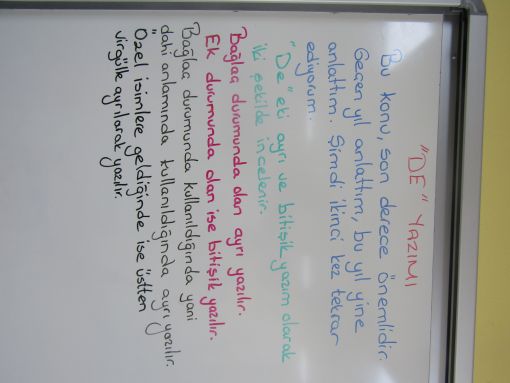 "DE" YAZIMI
Bu konu, son derece önemlidir.
Geçen yıl anlattım, bu yıl yine
anlattım. Şimdi ikinci kez tekrar
ediyorum.
"De" eki ayrı ve bitişik yazım olarak
iki şekilde incelenir.
Bağlaç durumunda olan ayrı yazılır.
Ek durumunda olan ise bitişik yazılır.
Bağlaç durumunda kullanıldığında yani
dahi anlamında kullanıldığında ayrı yazılır.
Özel isimlere geldiğinde ise üstten
virgülle ayrılarak yazılır.